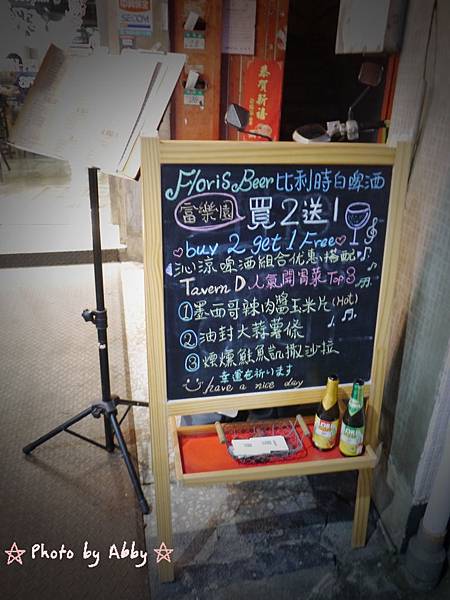 SECOM
恭賀新禧
Floris Beer 比利時白啤酒
富樂園 買2送1
buy 2 get 1 Free
沁涼啤酒組合优惠搭配
Tavern D 人氣開胃菜 Top 3
①墨西哥辣肉醬玉米片(Hot)
②油封大蒜薯條
③燻燻鮭魚凱撒沙拉
幸運を祈います
have a nice day
Photo by Abby